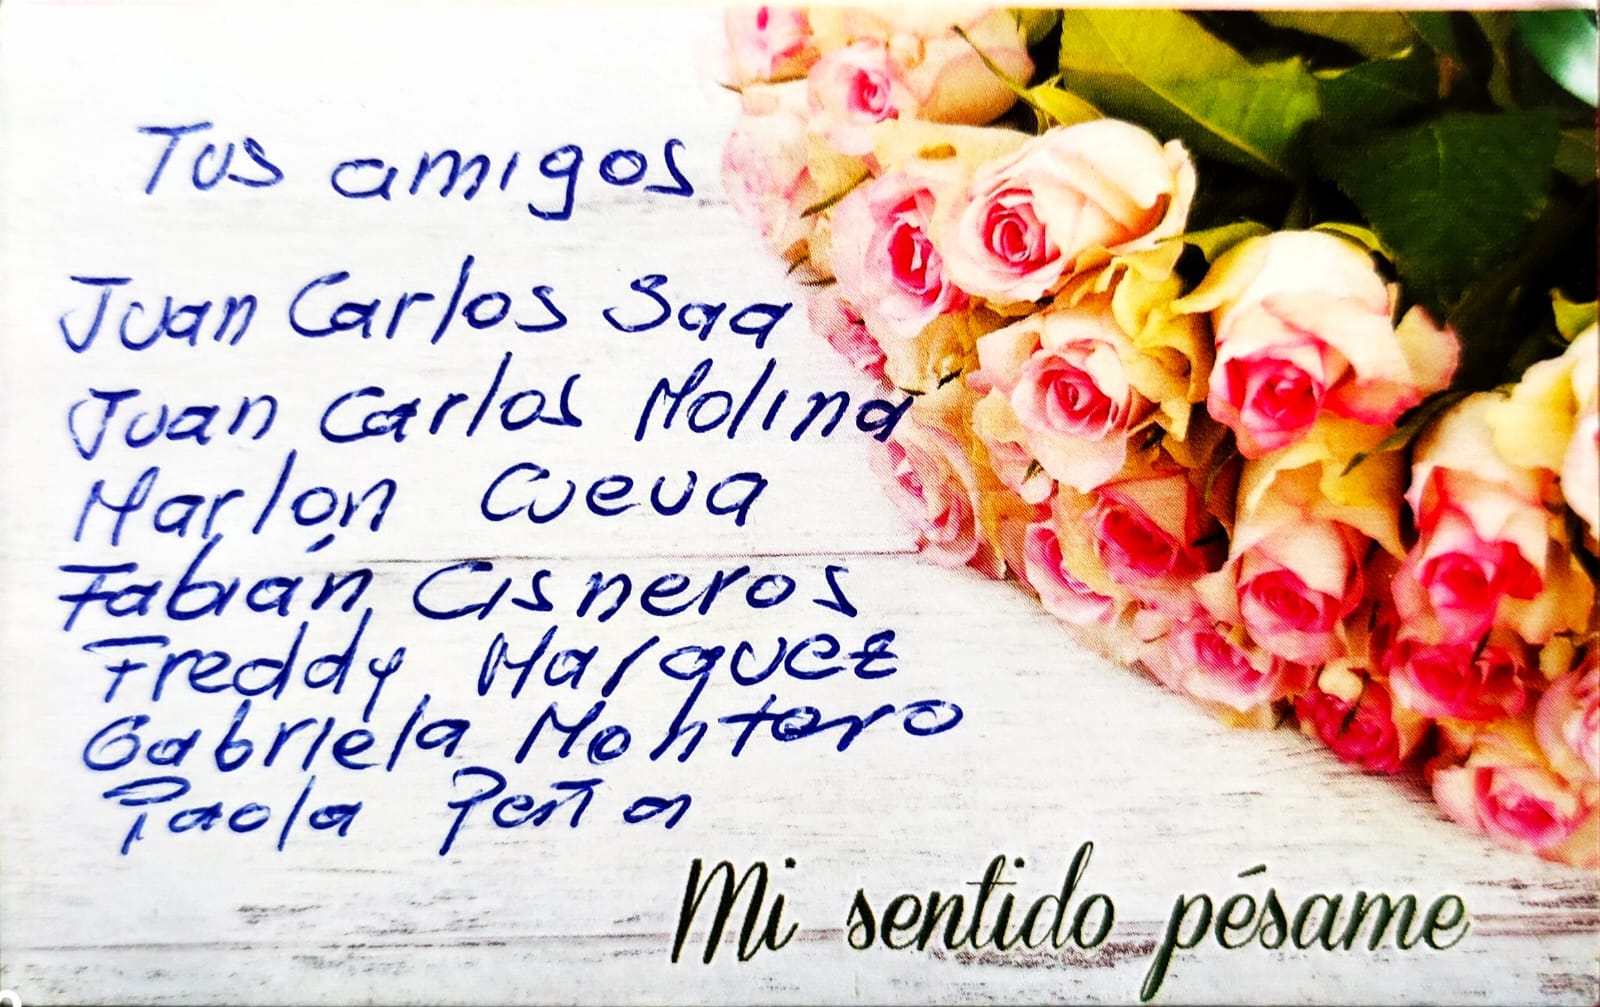 Tus amigos
Juan Carlos Saa
Juan Carlos Molina
Marlon Cueva
Fabián Cisneros
Freddy Marquez
Gabriela Montero
Paola Peña
Mi sentido pésame